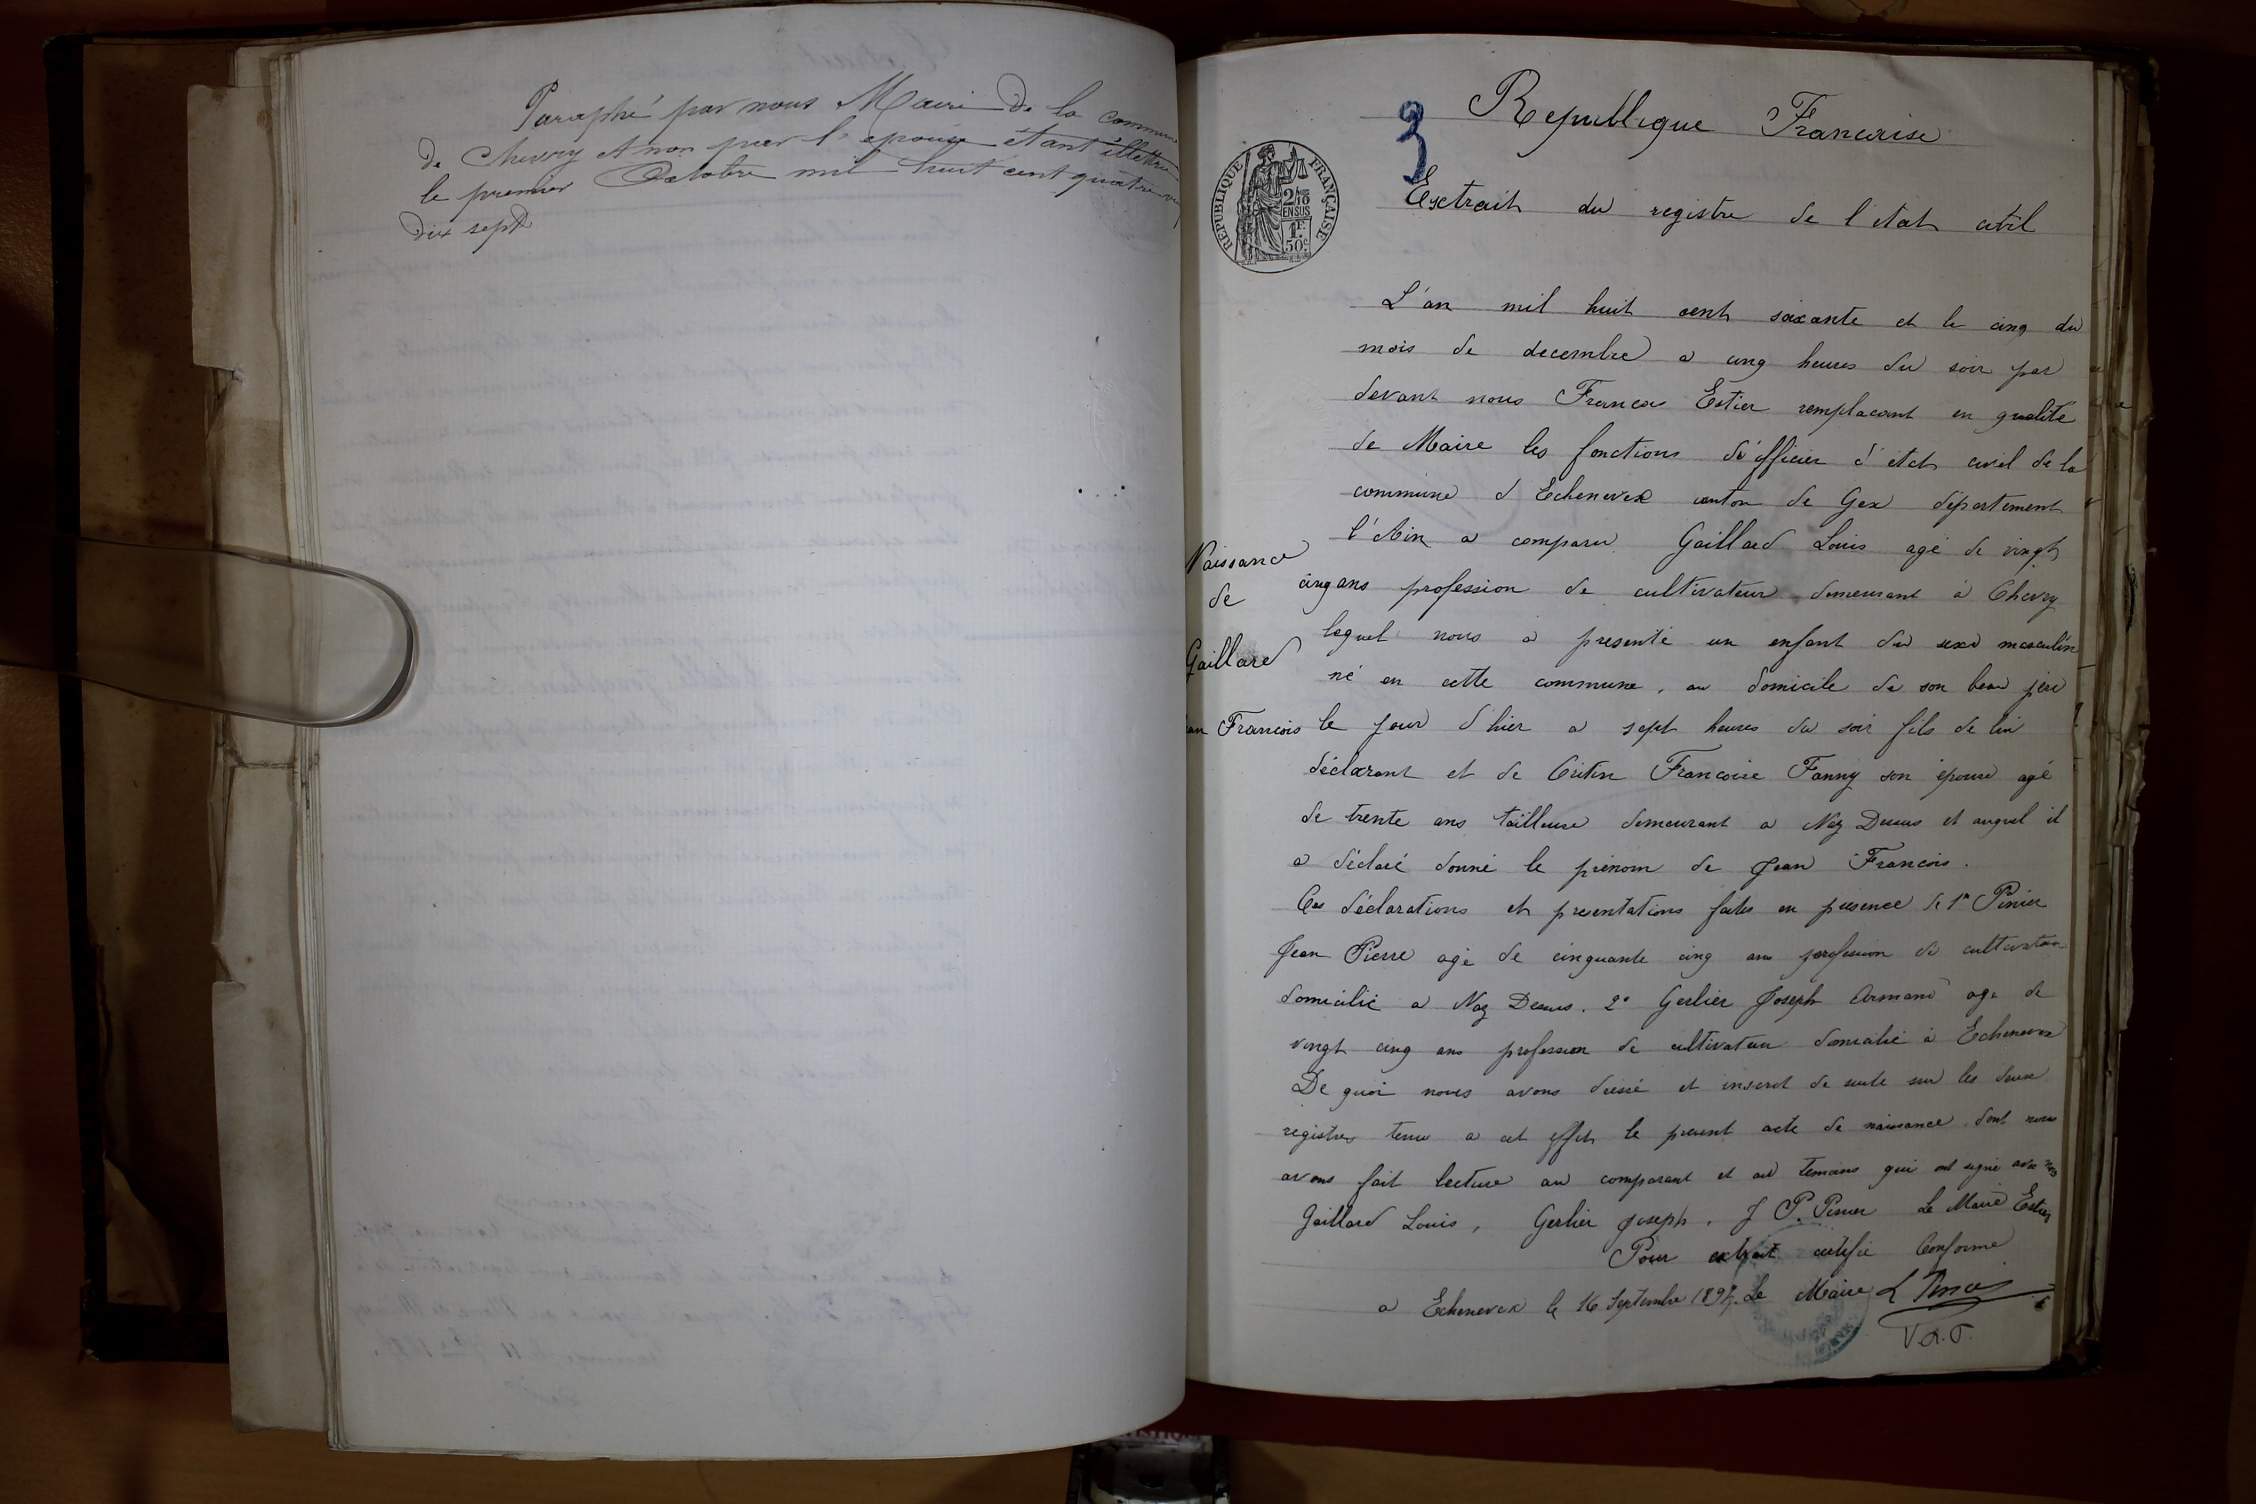 Paraphé par nous Maire de la commune
de Chevry et non par l'epouse étant illettré
le premier Octobre mil huit cent quatre vin
dix sept
3
Republique Francaise
REPUBLIQUE FRANÇAISE
2/10
EN SUS
1F
50c
Extrait du registre de l'etat civil
L'an mil huit cent soixante et le cinq du
mois de decembre a cinq heures du soir par
devant nous Francois Estier remplacant en qualite
de Maire les fonctions d'officier d'etat civil de la
commune d Echenevex canton de Gex département
l'Ain a comparu Gaillard Louis agé de vingt
cinq ans profession de cultivateur demeurant à Chevry
lequel nous a presenté un enfant du sexe masculin
né en cette commune, au domicile de son beau père
le jour d'hier a sept heures du soir fils de lui
déclarant et de Critin Francoise Fanny son épouse agé
de trente ans tailleuse demeurant a Naz Dessus et auquel il
a déclaré donné le prénom de Jean Francois.
Ces déclarations et presentations faites en presence de 1er Pinier
Jean Pierre agé de cinquante cinq ans profession de cultivateur
domicilié a Naz Dessus. 2° Gerlier Joseph Armand age de
vingt cinq ans profession de cultivateur domicilié à Echenevex
De quoi nous avons dressé et inscrit de suite sur les deux
registres tenus a cet effet le present acte de naissance dont nous
avons fait lecture au comparant et au temoins qui ont signé avec nous
Gaillard Louis, Gerlier Joseph, J P. Pinier Le Maire Estier
Pour extrait certifié Conforme
a Echenevex le 16 Septembre 1897. Le Maire
Naissance
de
Gaillard
an Francois